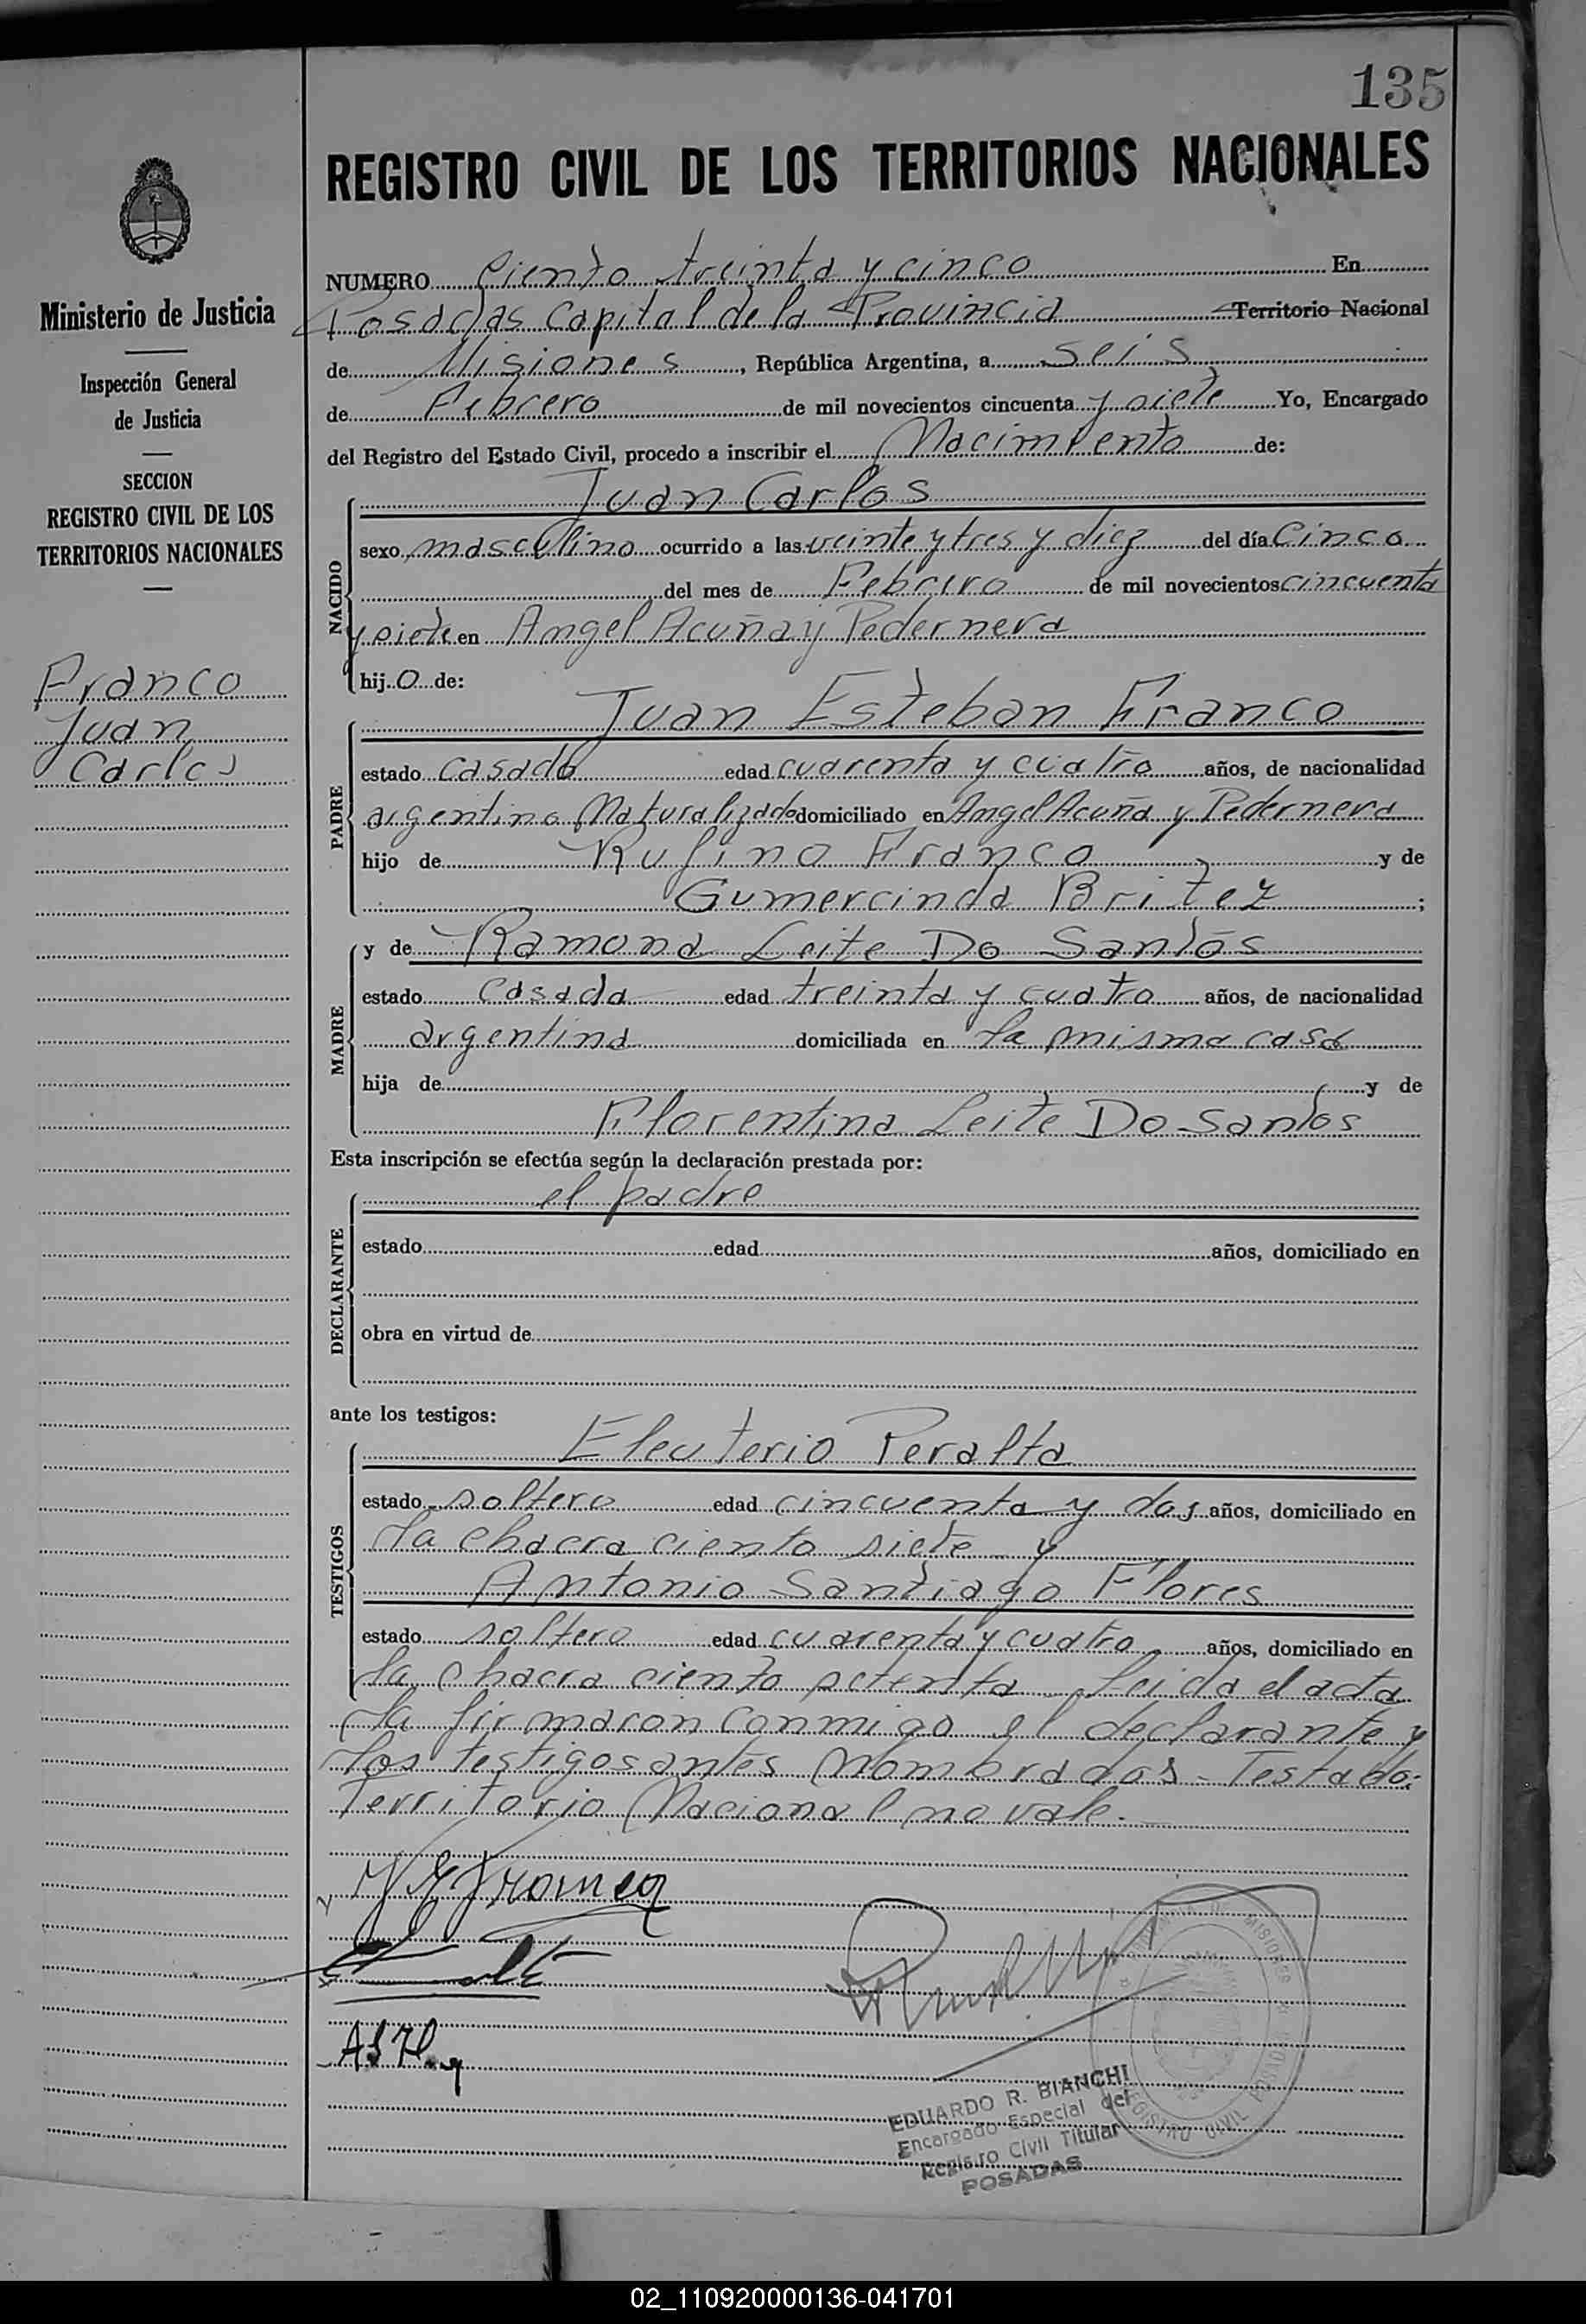 135
REGISTRO CIVIL DE LOS TERRITORIOS NACIONALES
Ministerio de Justicia
Inspección General
de Justicia
SECCION
REGISTRO CIVIL DE LOS
TERRITORIOS NACIONALES
Franco
Juan
Carlos
NUMERO Ciento treinta y cinco En
Posadas Capital de la Provincia Territorio Nacional
de Misiones, República Argentina, a seis
de Febrero de mil novecientos cincuenta y siete Yo, Encargado
del Registro del Estado Civil, procedo a inscribir el Nacimiento de:
NACIDO
Juan Carlos
sexo masculino ocurrido a las veinte y tres y diez del día Cinco
del mes de Febrero de mil novecientos cincuenta
y siete en Angel Acuña y Pedernera
hijo de:
PADRE
Juan Esteban Franco
estado casado edad cuarenta y cuatro años, de nacionalidad
argentino Naturalizado domiciliado en Angel Acuña y Pedernera
hijo de Rufino Franco y de
Gumercinda Britez;
MADRE
y de Ramona Leite Do Santos
estado casada edad treinta y cuatro años, de nacionalidad
argentina domiciliada en la misma casa
hija de y de
Florentina Leite Do Santos
Esta inscripción se efectúa según la declaración prestada por:
DECLARANTE
el padre
estado edad años, domiciliado en
obra en virtud de
ante los testigos:
TESTIGOS
Eleuterio Peralta
estado soltero edad cincuenta y dos años, domiciliado en
la chacra ciento siete y
Antonio Santiago Flores
estado soltero edad cuarenta y cuatro años, domiciliado en
la chacra ciento setenta. Leida el acta
la firmaron conmigo el declarante y
los testigos antes nombrados - Testado:
Territorio Nacional no vale.-
EDUARDO R. BIANCHI
Encargado Especial del
Registro Civil Titular
POSADAS
02_110920000136-041701